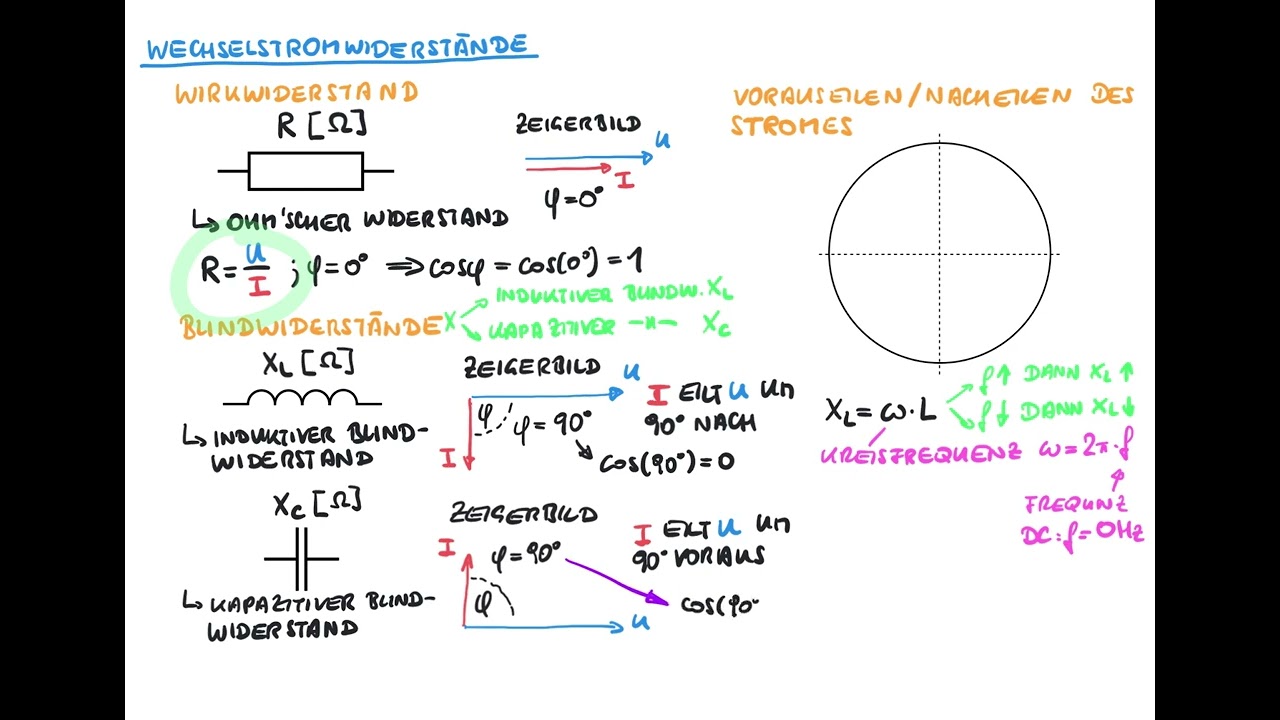 WECHSELSTROMWIDERSTÄNDE
WIRKWIDERSTAND
R [Ω]
ZEIGERBILD
U
I
φ=0°
↳ OHM'SCHER WIDERSTAND
R = U/I ; φ=0° ⇒ cosφ = cos(0°) = 1
BLINDWIDERSTÄNDE X
INDUKTIVER BLINDW. XL
KAPAZITIVER -"- XC
XL [Ω]
ZEIGERBILD
U
φ
φ = 90°
I
cos(90°) = 0
I EILT U UM
90° NACH
↳ INDUKTIVER BLIND-
WIDERSTAND
XC [Ω]
ZEIGERBILD
I
φ = 90°
φ
U
I EILT U UM
90° VORAUS
cos(90°
↳ KAPAZITIVER BLIND-
WIDERSTAND
VORAUSEILEN/NACHEILEN DES
STROMES
XL = ω·L
f↑ DANN XL↑
f↓ DANN XL↓
KREISFREQUENZ ω = 2π·f
FREQUNZ
DC: f=0Hz